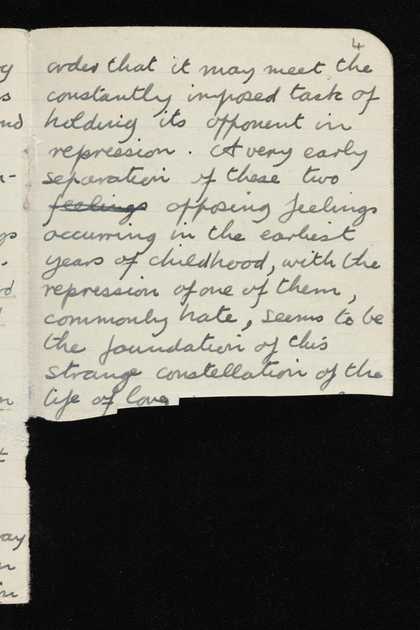 4
order that it may meet the
constantly imposed task of
holding its opponent in
repression. A very early
separation of these two
feelings opposing feelings
occurring in the earliest
years of childhood, with the
repression of one of them,
commonly hate, seems to be
the foundation of this
strange constellation of the
life of love